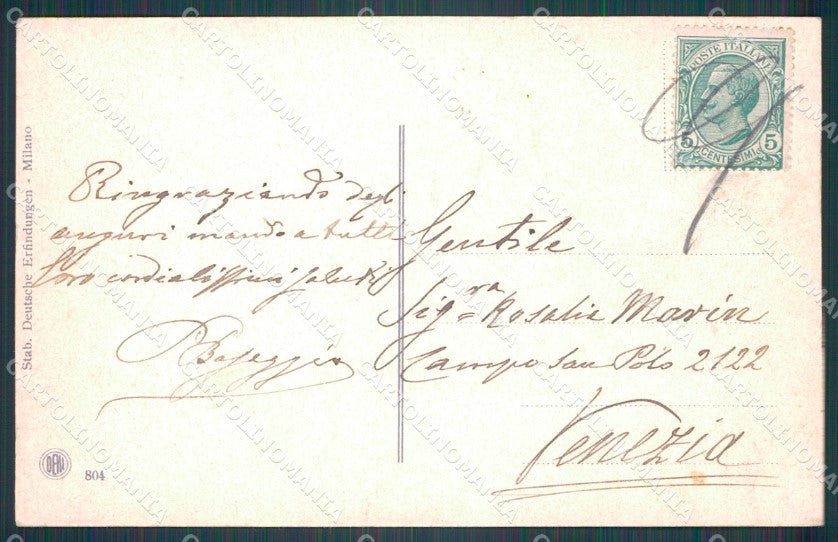 POSTE ITALIANE
5 5
CENTESIMI
Ringraziando degli
auguri mando a tutti
loro cordialissimi saluti
Gentile
Sig.ra Rosalia Marin
Campo San Polo 2122
Venezia
Stab. Deutsche Erfindungen - Milano
804
CARTOLINOMANIA